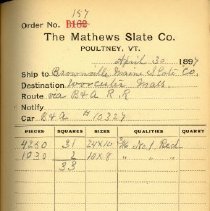 187
Order No. D182
The Mathews Slate Co.
POULTNEY, VT.
April 30 1897
Ship to Brownville Maine Slate Co.
Destination Worcester Mass.
Route via B & A R.R
Notify
Car B & A # 10327
PIECES SQUARES SIZES QUALITIES QUANTITY
4260 31 24x10 No. 1 Red
1030 2 10x8 " " "
33